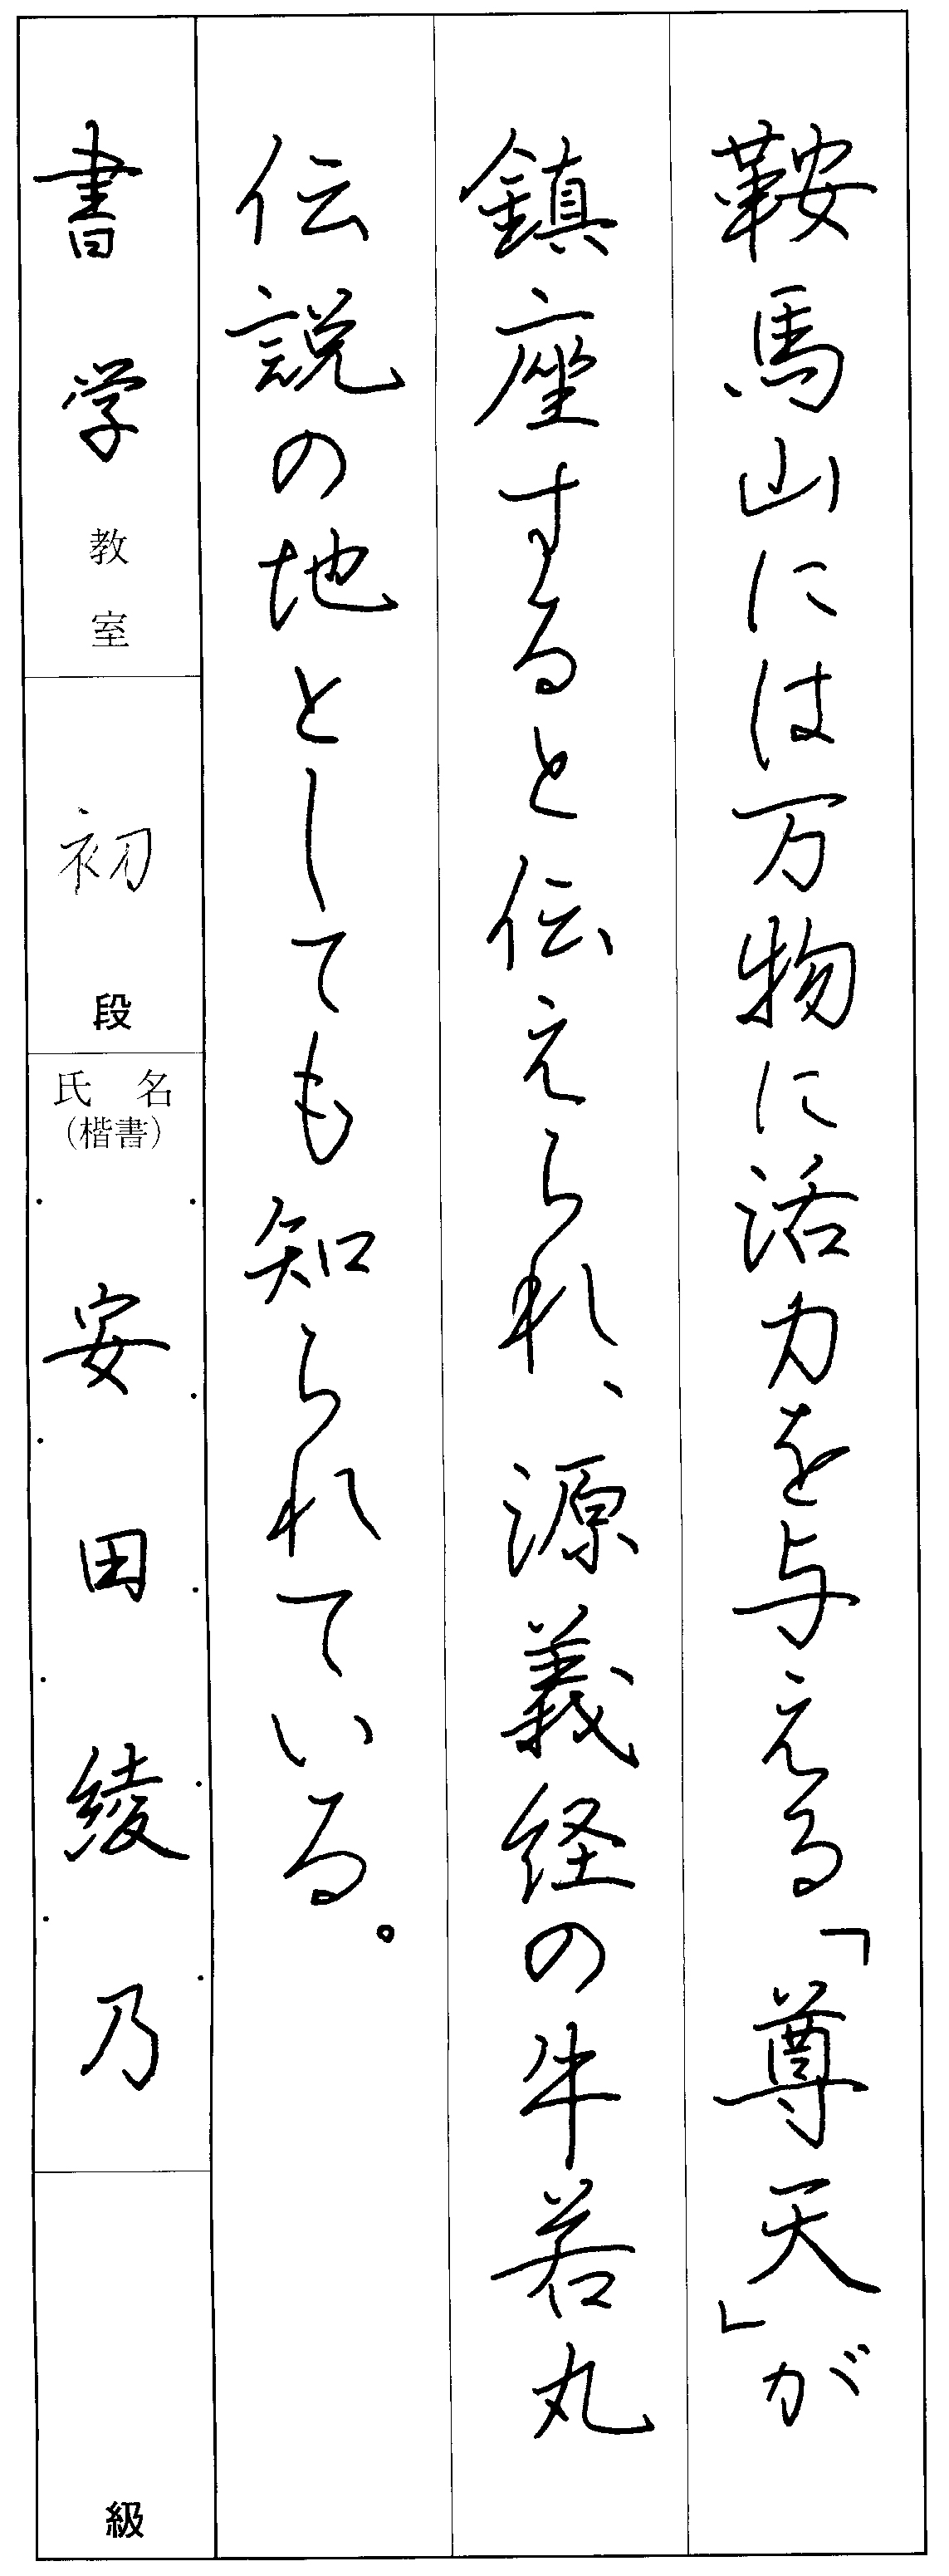 鞍馬山には万物に活力を与える「尊天」が
鎮座すると伝えられ、源義経の牛若丸
伝説の地としても知られている。
書学教室
初段
氏名
(楷書)
安田綾乃
級